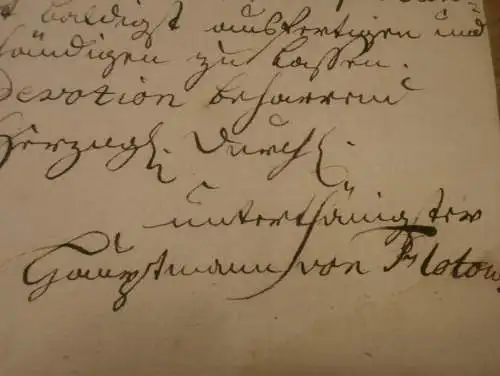 t baldigst ausfertigen und
händigen zu lassen.
Devotion beharrend
Herzogl. Durchl.
unterthänigster
Hauptmann von Flotow